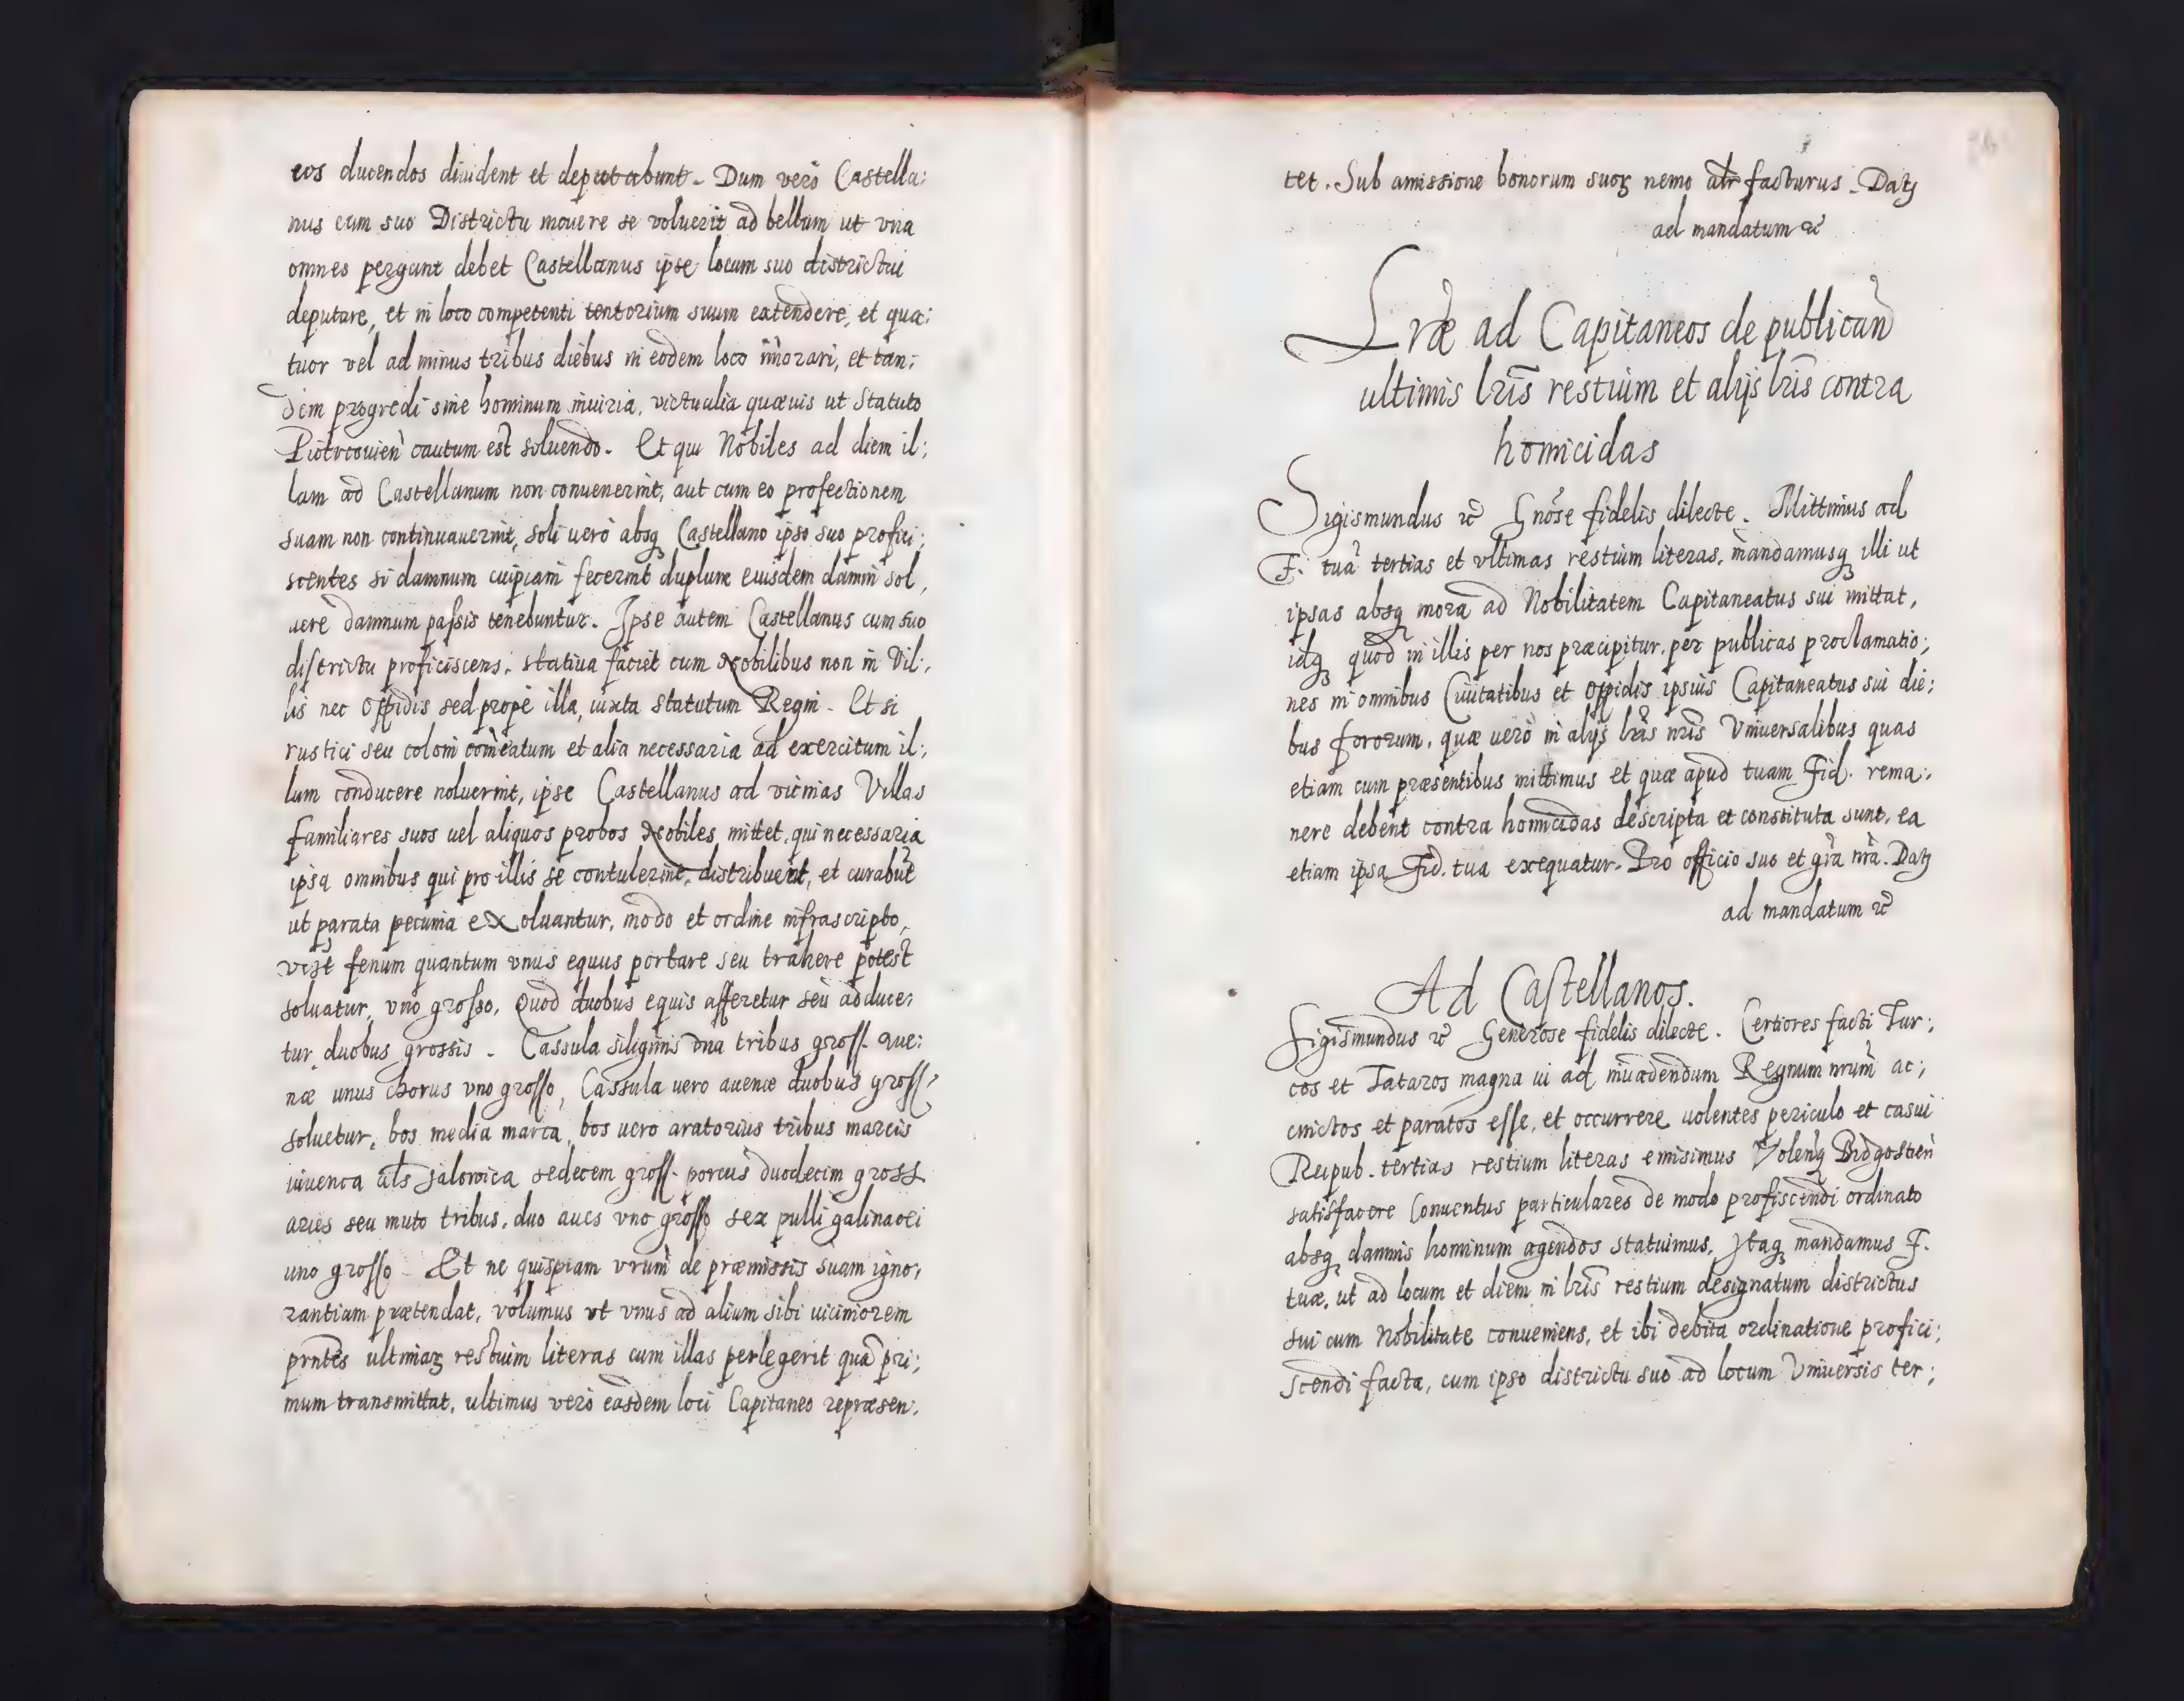 eos ducendos diuident et deputabunt. Dum verò Castella:
nus cum suo Districtu mouere se voluerit ad bellum ut vna
omnes pergant debet Castellanus ipse locum suo districtui
deputare, et in loco competenti tentorium suum extendere, et qua:
tuor vel ad minus tribus diebus in eodem loco im̄orari, et tan:
dem progredi sine hominum iniuria, victualia quæuis ut Statuto
Piotrcouien̄ cautum est soluendo. Et qui Nobiles ad diem il:
lam ad Castellanum non conuenerint, aut cum eo profectionem
suam non continuauerint, soli uerò absq₃ Castellano ipso suo profici:
scentes si damnum cuipiam fecerint duplum eiusdem damni sol,
uere damnum passis tenebuntur. Ipse autem Castellanus cum suo
districtu proficiscens, statiua faciet cum Nobilibus non in Vil:,
lis nec Oppidis sed propè illa, iuxta statutum Regni. Et si
rustici seu coloni com̄eatum et alia necessaria ad exercitum il:,
lum conducere noluerint, ipse Castellanus ad vicinas Villas
familiares suos uel aliquos probos Nobiles mittet, qui necessaria
ipsa omnibus qui pro illis se contulerint, distribuent, et curabūt
ut parata pecunia exoluantur, modo et ordine infrascripto,
vz̄t fenum quantum vnus equus portare seu trahere potest
soluatur, vno grosso, Quod duobus equis afferetur seu adduce:
tur duobus grossis. Cassula siliginis vna tribus gross. aue:
næ unus chorus vno grosso, Cassula uero auenæ duobus gross:
soluetur, bos media marca, bos uero aratorius tribus marcis
iuuenca al̄s Jalowica sedecem gross. porcus duodecim gross.
aries seu muto tribus, duo aues vno grosso sex pulli galinacei
uno grosso. Et ne quispiam vrūm de præmissis suam igno,
rantiam prætendat, volumus ut vnus ad alium sibi uiciniorem
prn̄tes ultimaꝝ restium literas cum illas perlegerit quā pri:
mum transmittat, ultimus verò easdem loci Capitaneo repræsen:
tet. Sub amissione bonorum suoꝝ nemo alr̄ facturus. Datꝫ
ad mandatum ꝛc̄
Lr̄æ ad Capitaneos de publican̄
ultimis lr̄is restium et alijs lr̄is contra
homicidas
Sigismundus ꝛc̄ Gnōse fidelis dilecte. Mittimus ad
F. tuā tertias et vltimas restium literas, mandamusq₃ illi ut
ipsas absq₃ mora ad Nobilitatem Capitaneatus sui mittat,
idq₃ quod in illis per nos præcipitur, per publicas proclamatio;
nes in omnibus Ciuitatibus et Oppidis ipsius Capitaneatus sui die:
bus fororum, quæ uerò in alijs lr̄is nr̄is Vniuersalibus quas
etiam cum præsentibus mittimus et quæ apud tuam Fid. rema:,
nere debent contra homicidas descripta et constituta sunt, ea
etiam ipsa Fid. tua exequatur. Pro officio suo et gr̄a nr̄a. Datꝫ
ad mandatum ꝛc̄
Ad Castellanos.
Sigismundus ꝛc̄ Generose fidelis dilecte. Certiores facti Tur:
cos et Tataros magna ui ad inuadendum Regnum nrūm ac:,
cinctos et paratos esse, et occurrere uolentes periculo et casui
Reipub. tertias restium literas emisimus Volenq₃ Bidgostien̄
satisfacere Conuentus particulares de modo profiscendi ordinato
absq₃ damnis hominum agendos statuimus, Itaq₃ mandamus F.
tuæ, ut ad locum et diem in lr̄is restium designatum districtus
sui cum Nobilitate conueniens, et ibi debita ordinatione profici:
scendi facta, cum ipso districtu suo ad locum Vniuersis ter: